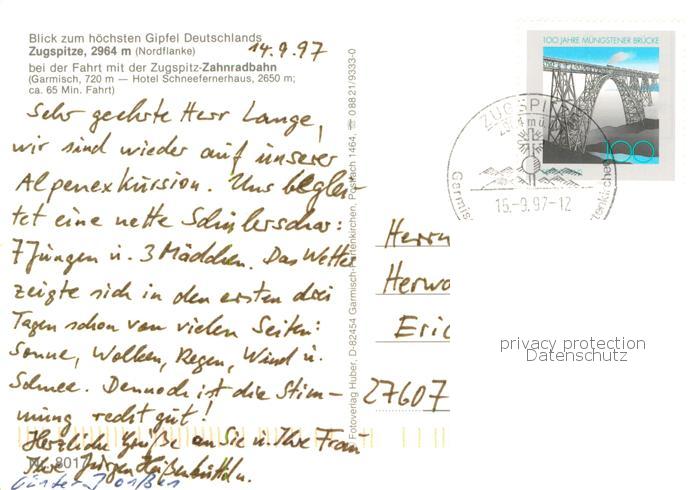 Blick zum höchsten Gipfel Deutschlands
Zugspitze, 2964 m (Nordflanke)
14.9.97
bei der Fahrt mit der Zugspitz-Zahnradbahn
(Garmisch, 720 m — Hotel Schneefernerhaus, 2650 m;
ca. 65 Min. Fahrt)
Sehr geehrte Herr Lange,
wir sind wieder auf unserer
Alpenexkursion. Uns beglei-
tet eine nette Schülerschar:
7 Jungen u. 3 Mädchen. Das Wetter
zeigte sich in den ersten drei
Tagen schon von vielen Seiten:
Sonne, Wolken, Regen, Wind u.
Schnee. Dennoch ist die Stim-
mung recht gut!
Herzliche Grüße an Sie u. Ihre Frau
Ihre Jürgen
8017
© Fotoverlag Huber, D-82454 Garmisch-Partenkirchen, Postfach 1464, ☏ 0 88 21/9333-0
100 JAHRE MÜNGSTENER BRÜCKE
100
ZUGSPITZE
15.-9.97-12
Herrn
Herwo
Eric
27607
privacy protection
Datenschutz